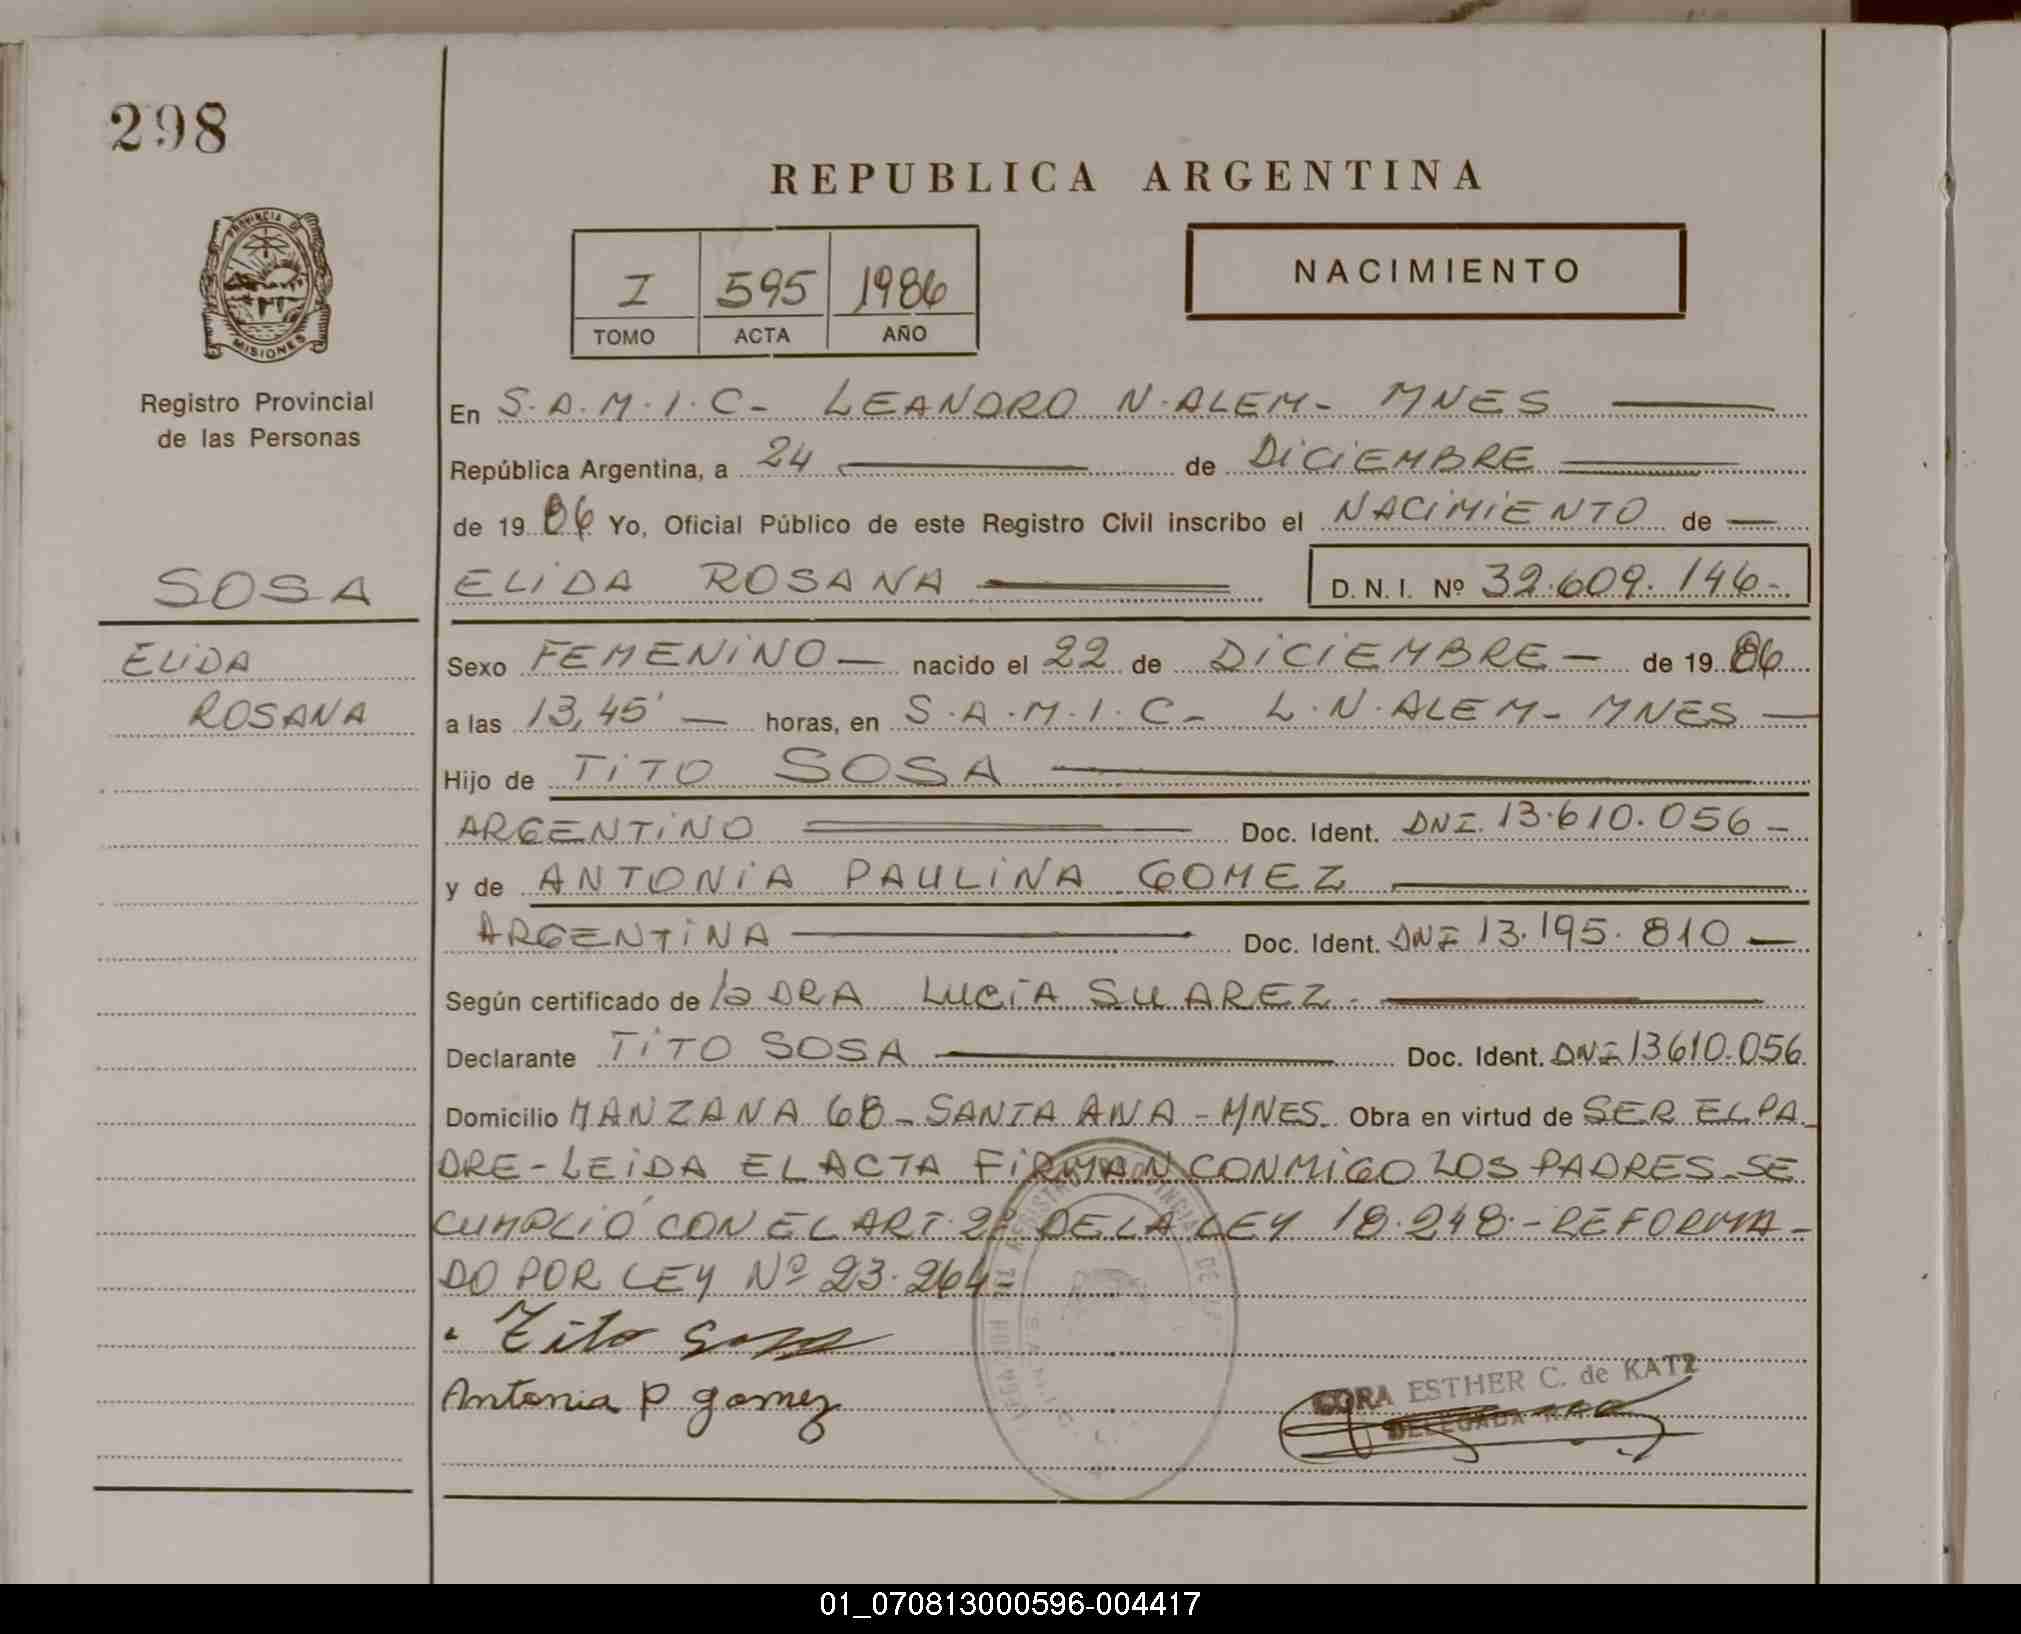 298
REPUBLICA ARGENTINA
PROVINCIA DE
MISIONES
I 595 1986
TOMO ACTA AÑO
NACIMIENTO
Registro Provincial
de las Personas
En S.A.M.I.C- LEANDRO N.ALEM- MNES
República Argentina, a 24 de DiCiEMBRE
de 19 86 Yo, Oficial Público de este Registro Civil inscribo el NACiMiENTO de
SOSA
ELiDA ROSANA D. N. I. Nº 32.609.146-
ELiDA
ROSANA
Sexo FEMENiNO nacido el 22 de DiCiEMBRE- de 19 86
a las 13,45' horas, en S.A.M.I.C- L.N.ALEM- MNES
Hijo de TiTO SOSA
ARGENTiNO Doc. Ident. DNI. 13.610.056-
y de ANTONiA PAULiNA GOMEZ
ARGENTiNA Doc. Ident. DNI 13.195.810
Según certificado de la DRA LUCIA SUAREZ-
Declarante TiTO SOSA Doc. Ident. DNI 13610.056
Domicilio MANZANA 68-SANTA ANA-MNES. Obra en virtud de SER EL PA-
DRE-LEiDA EL ACTA FiRMAN CONMiGO LOS PADRES-SE
CUMPLIÓ CON EL ART. 2º DE LA LEY 18.248.-REFORMA-
DO POR LEY Nº 23.264-
Tito Sosa
Antonia P gomez
CORA ESTHER C. de KATZ
DELEGADA
01_070813000596-004417